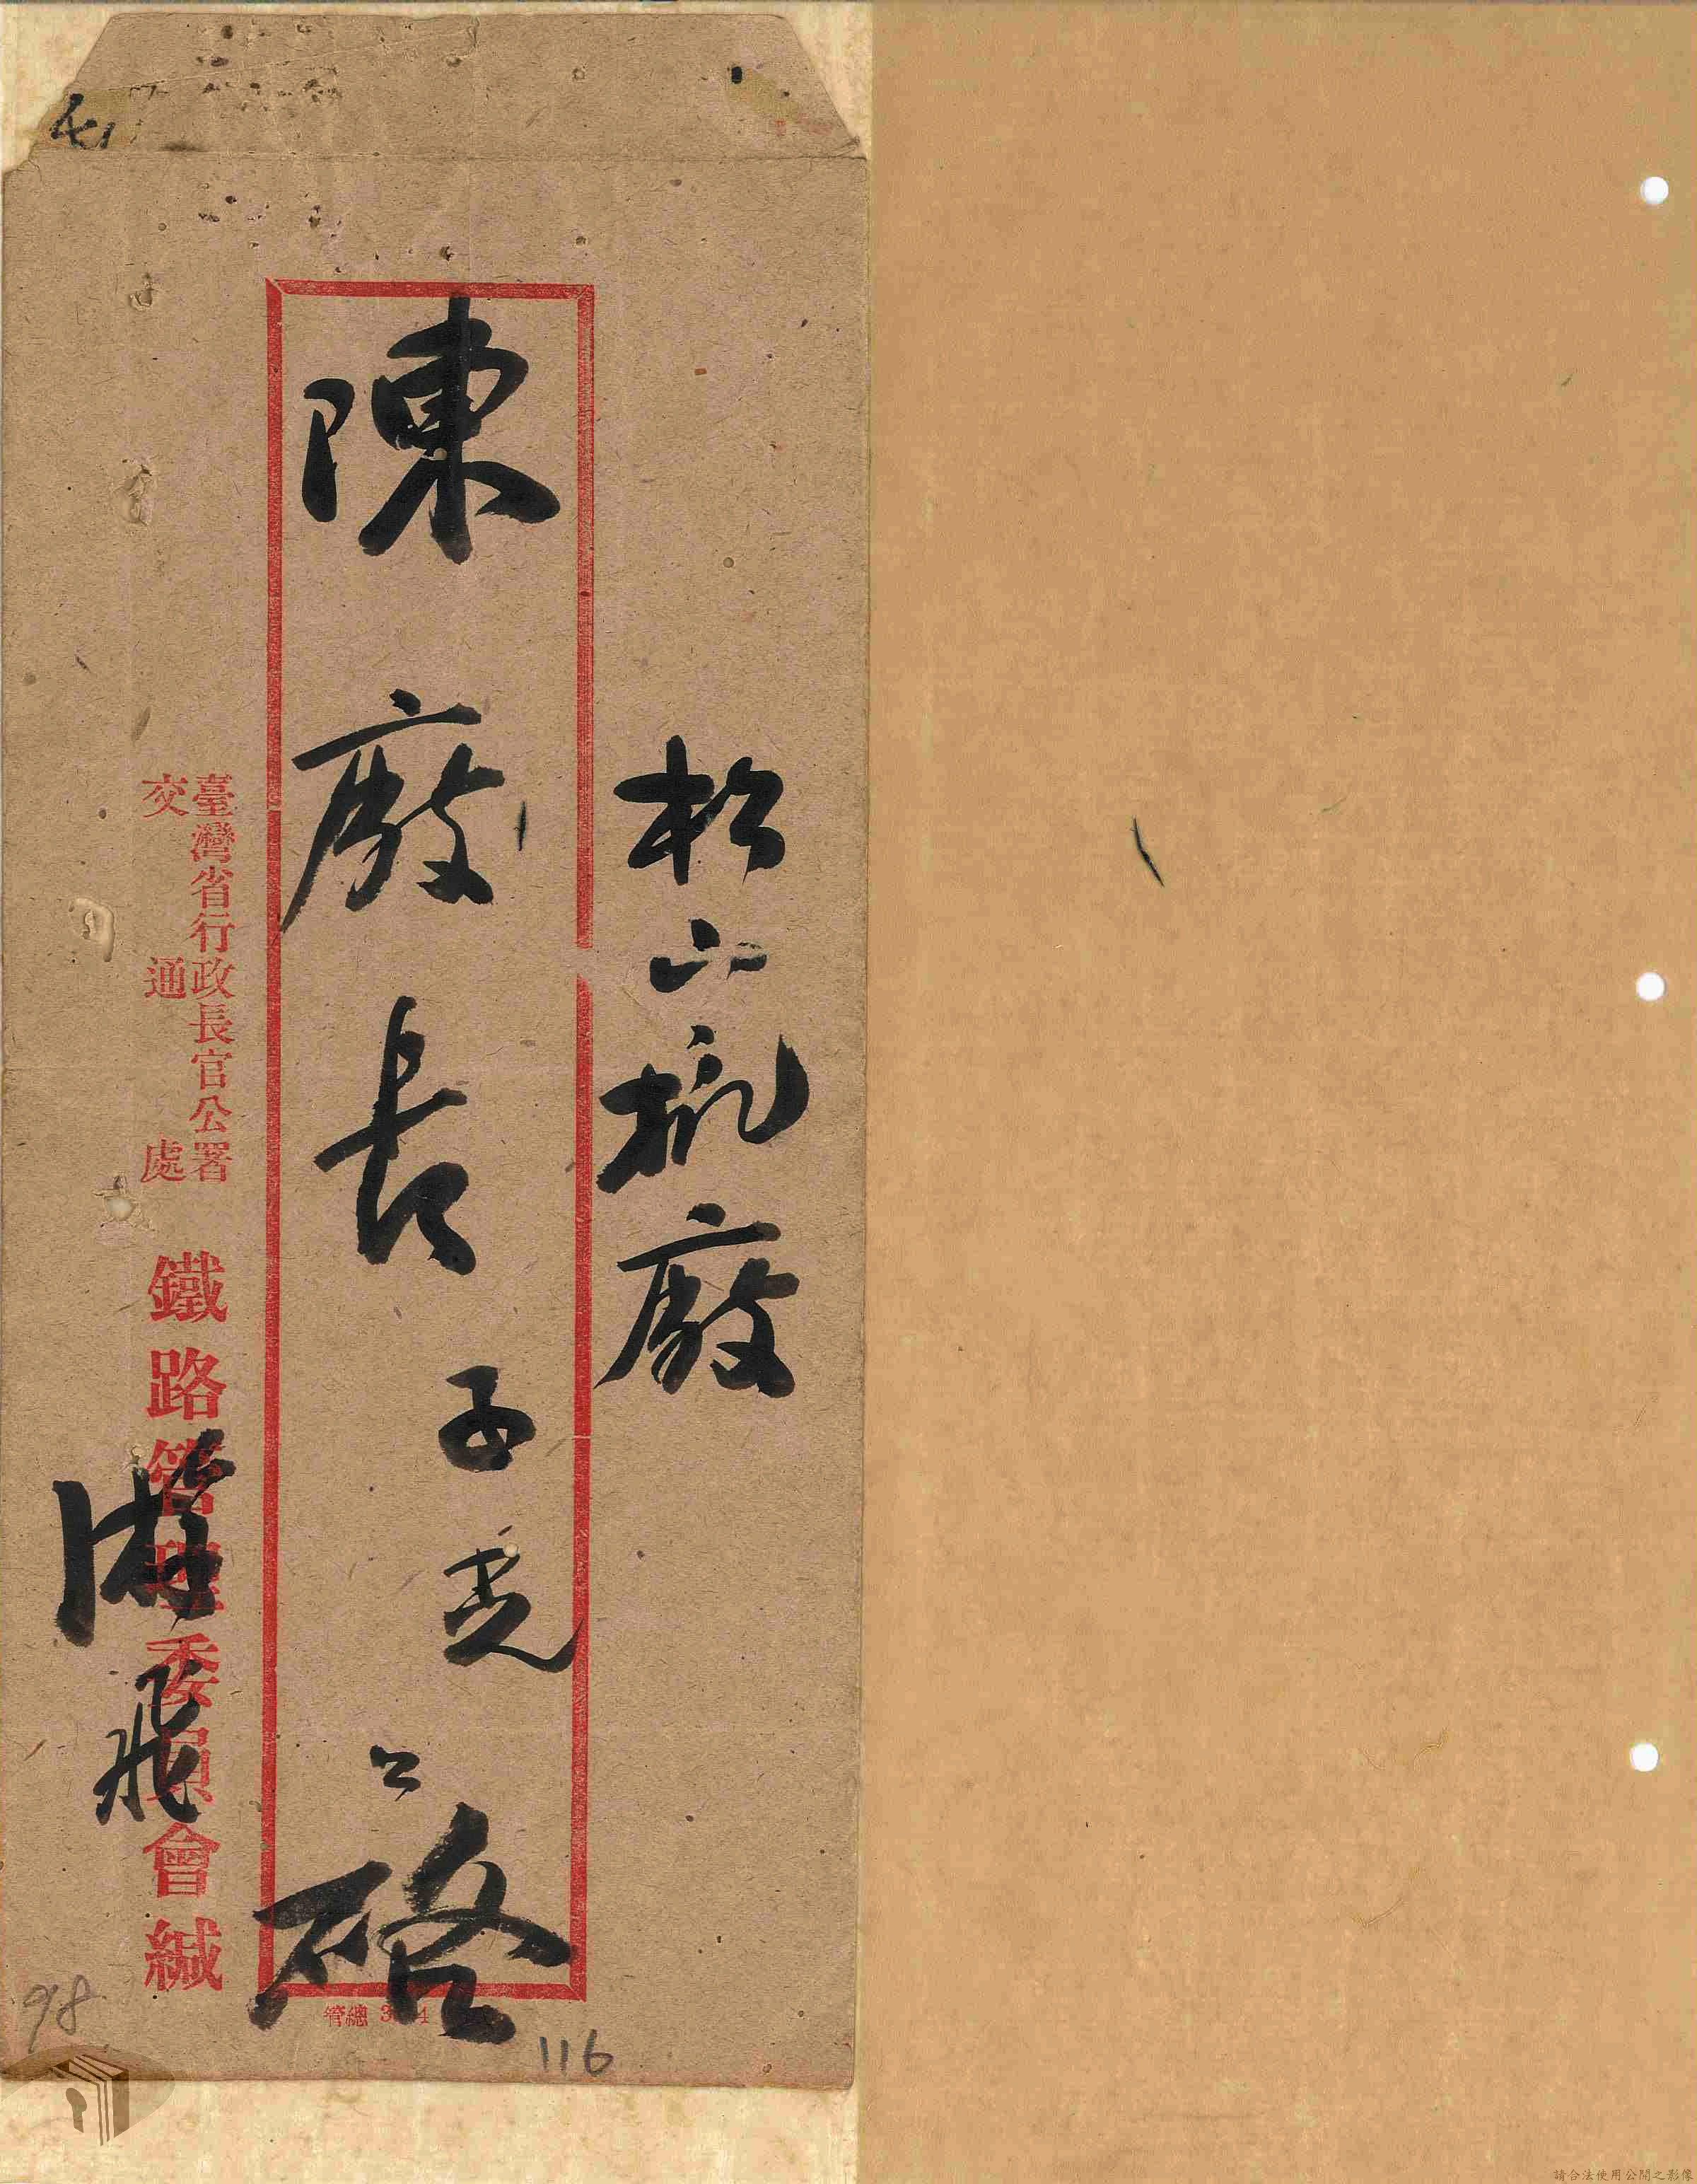 松山機廠
陳廠長子光
臺灣省行政長官公署
交通處
鐵路管理委員會緘
飛
管總 3
116
98
請合法使用公開之影像